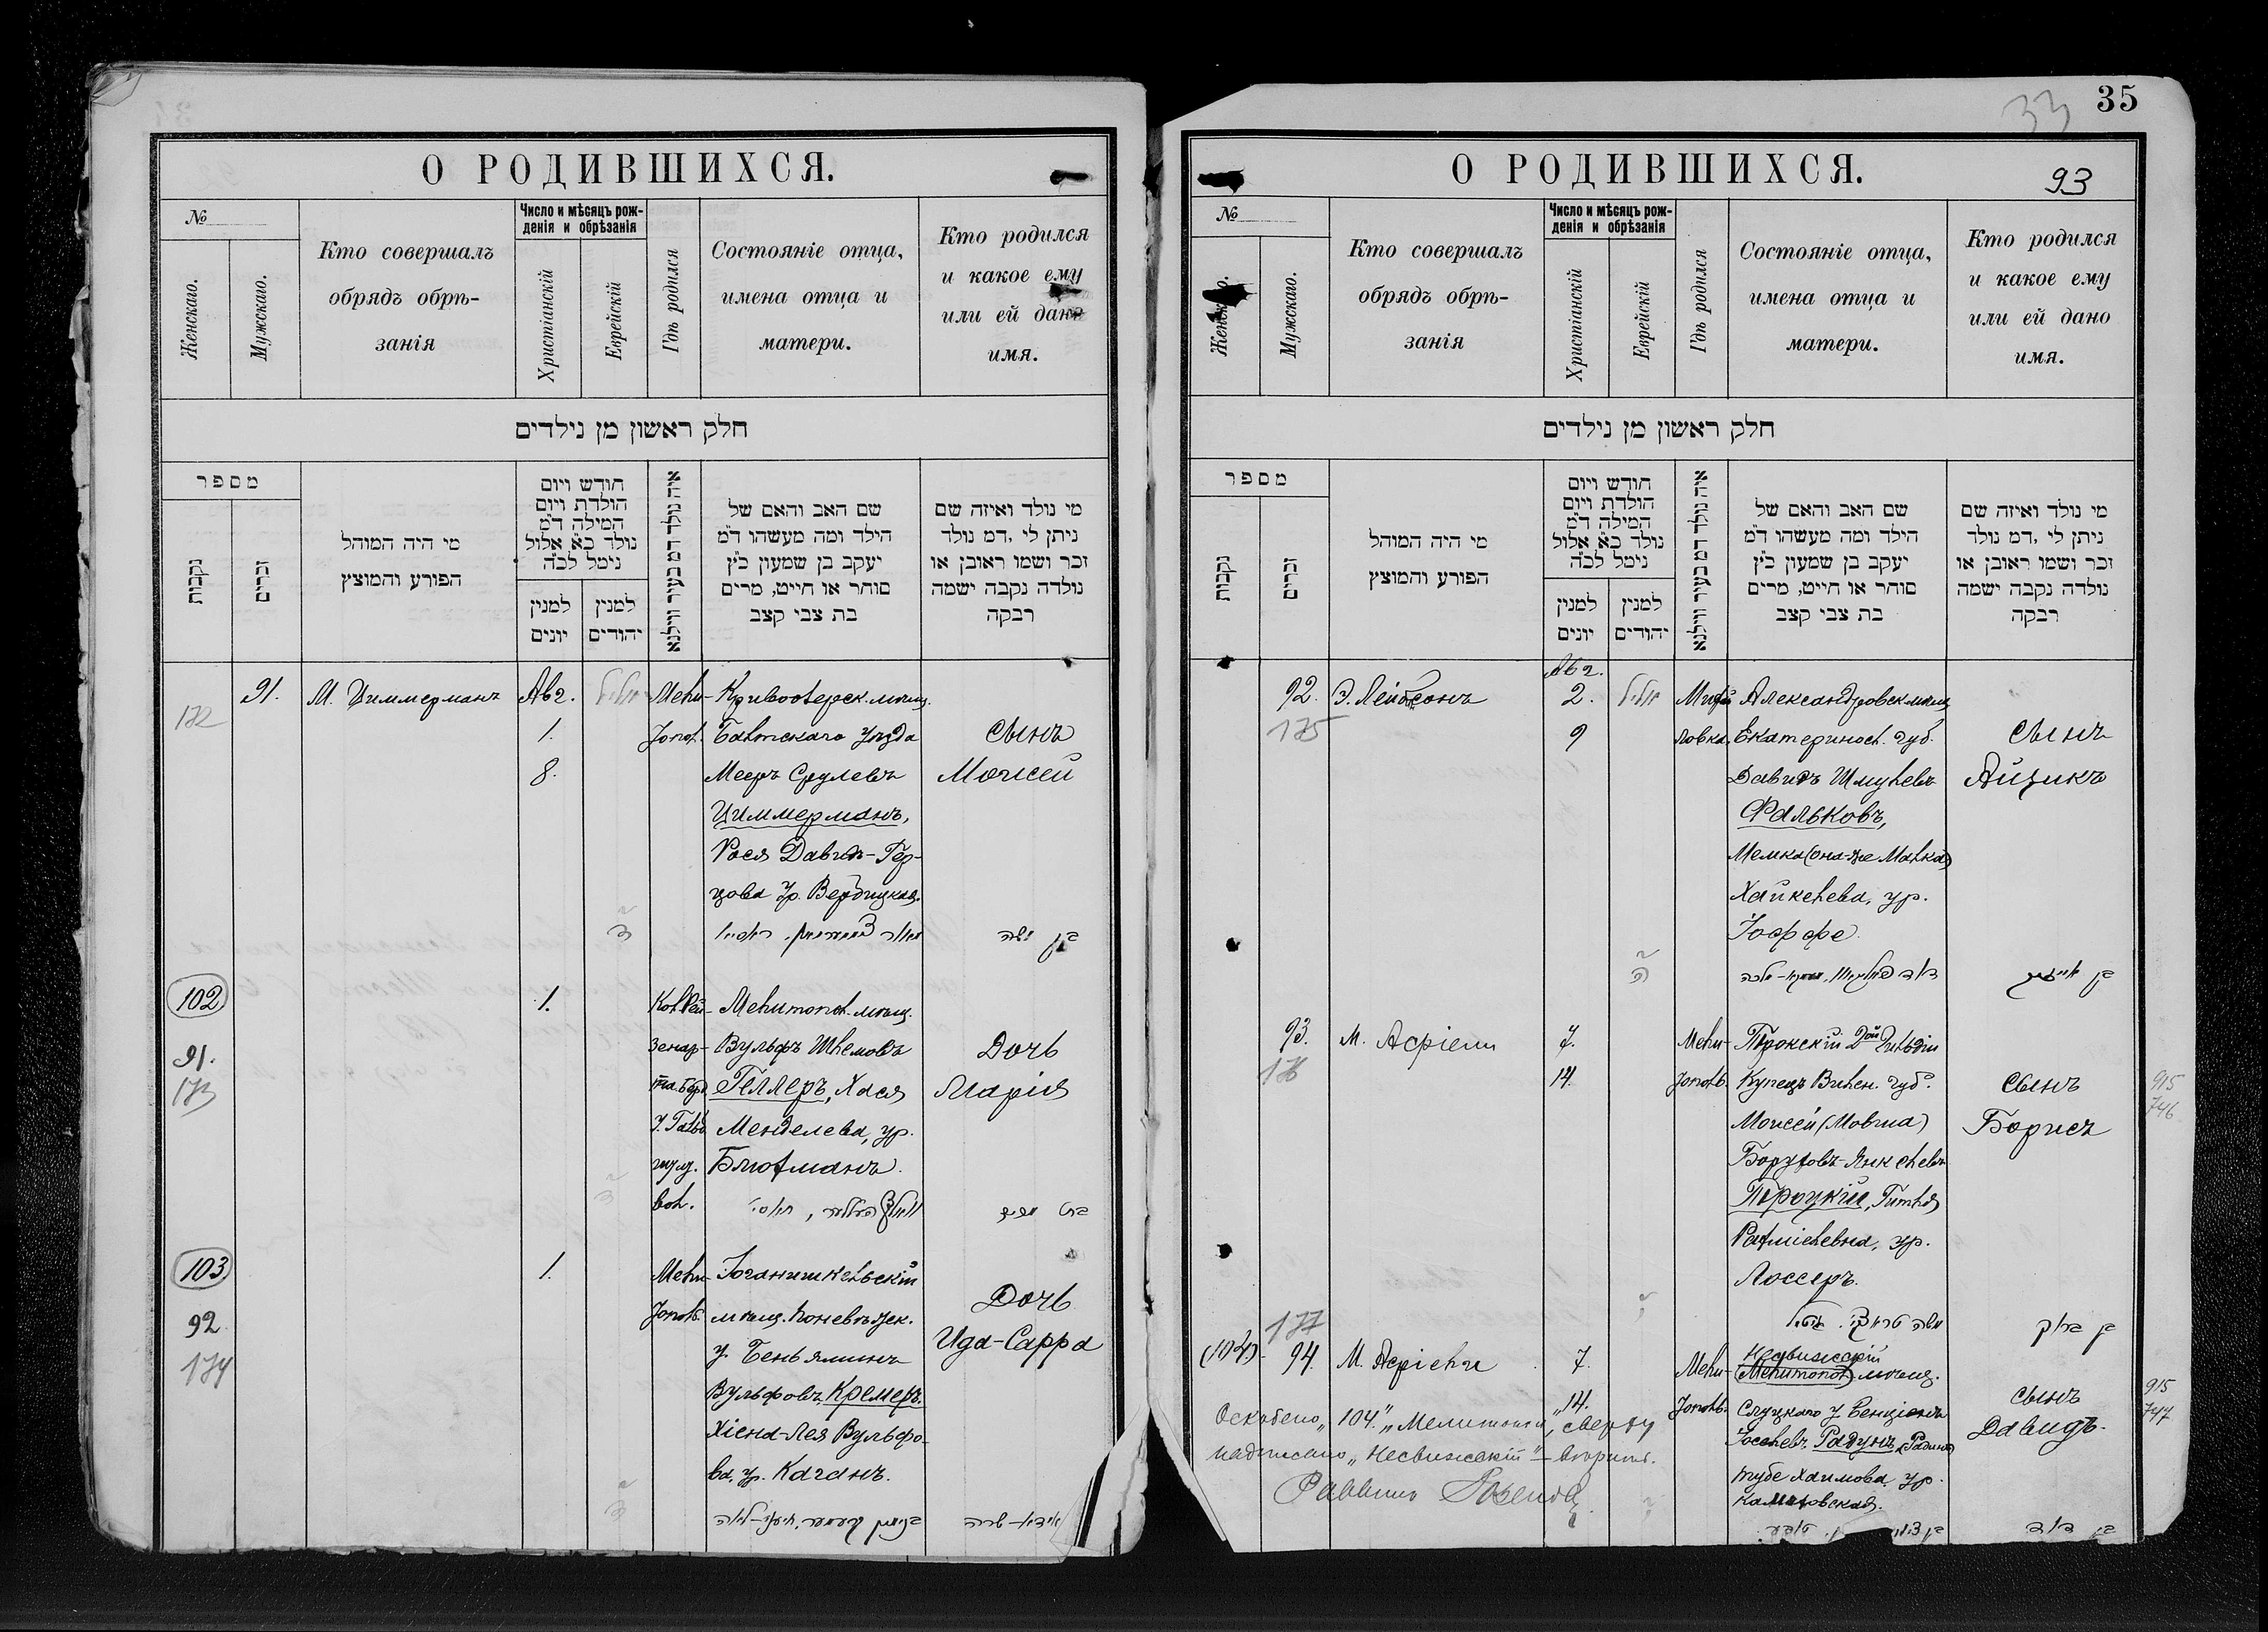 О РОДИВШИХСЯ.
№
Женскаго.
Мужскаго.
Кто совершалъ
обрядъ обрѣ-
занія
Число и мѣсяцъ рож-
денія и обрѣзанія
Христіанскій
Еврейскій
Годъ родился
Состояніе отца,
имена отца и
матери.
Кто родился
и какое ему
или ей дано
имя.
חלק ראשון מן נילדים
מספר
נקבות
זכרים
מי היה המוהל
הפורע והמוצץ
חודש ויום
הולדת ויום
המילה ד״מ
נולד כ״א אלול
נימל לכ״ה
למנין
יונים
למנין
יהודים
איה נולד דמ בעיר ווילנא
שם האב והאם של
הילד ומה מעשהו ד״מ
יעקב בן שמעון כ״ץ
סוחר או חייט, מרים
בת צבי קצב
מי נולד ואיזה שם
ניתן לי ,דמ נולד
זכר ושמו ראובן או
נולדה נקבה ישמה
רבקה
91.
172
М. Циммерманъ
Авг.
1.
8.
Мели-
топ.
Кривоозерск. мѣщ.
Балтскаго Уѣзда
Мееръ Срулевъ
Циммерманъ,
Рося Давидъ-Гер-
цова ур. Вербицкая.
Сынъ
Моисей
בן משה
102
91.
173
1.
Мелитоп. мѣщ.
Вульфъ Шлемовъ
Геллеръ, Хася
Менделева, ур.
Блюфманъ.
Дочь
Марія
103
92
174
1.
Мели-
топол.
Іоганишкельскій
мѣщ. Поневѣжск.
у. Беньяминъ
Вульфовъ Кремеръ.
Хіена-Лея Вульфо-
ва, ур. Каганъ.
Дочь
Ида-Сарра
אידא-שרה
35
33
93
О РОДИВШИХСЯ.
№
Женскаго.
Мужскаго.
Кто совершалъ
обрядъ обрѣ-
занія
Число и мѣсяцъ рож-
денія и обрѣзанія
Христіанскій
Еврейскій
Годъ родился
Состояніе отца,
имена отца и
матери.
Кто родился
и какое ему
или ей дано
имя.
חלק ראשון מן נילדים
מספר
נקבות
זכרים
מי היה המוהל
הפורע והמוצץ
חודש ויום
הולדת ויום
המילה ד״מ
נולד כ״א אלול
נימל לכ״ה
למנין
יונים
למנין
יהודים
איה נולד דמ בעיר ווילנא
שם האב והאם של
הילד ומה מעשהו ד״מ
יעקב בן שמעון כ״ץ
סוחר או חייט, מרים
בת צבי קצב
מי נולד ואיזה שם
ניתן לי ,דמ נולד
זכר ושמו ראובן או
נולדה נקבה ישמה
רבקה
92.
175
Э. Лейбсонъ
Авг.
2.
9
Александровск. мѣщ
Екатеринос. губ.
Давидъ Шмулевъ
Фальковъ,
Мемка (она-же Малка)
Хайкелева, ур.
Іоффе.
Сынъ
Айзикъ
93.
176
М. Асріели
7.
14.
Мели-
тополь.
Троцкій 2ой Гильдіи
Купецъ Вилен. губ.
Моисей (Мовша)
Боруховъ-Янкелевъ
Троцкій, Гитля
Рахміелевна, ур.
Лоссеръ.
משה טרוצקי, גיטל
Сынъ
Борисъ
בן ברוך
915
746
177
(104)
94.
М. Асріели
7.
14.
Мели-
тополь.
Несвижскій
(Мелитопол) мѣщ.
Слуцкаго у. Бенціонъ
Іоселевъ Радунъ (Радинъ)
Тубе Хаимова, ур.
сынъ
Давидъ.
בן דוד
915
747
Оскоблено „104“ „Мелитопол“, сверху
надписано „Несвижскій“ – вѣрить.
Раввинъ